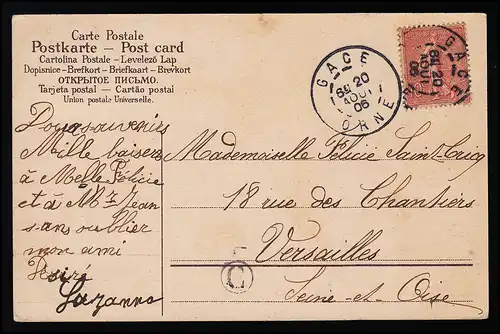 Carte Postale
Postkarte – Post card
Cartolina Postale – Levelező Lap
Dopisnice – Brefkort – Briefkaart – Brevkort
ОТКРЫТОЕ ПИСЬМО.
Tarjeta postal – Cartão postal
Union postale Universelle.
GACE
20
AOUT
06
ORNE
GACE
20
AOUT
06
souvenirs
Mille baisers
à Melle Félicie
et à Mr Jean
sans oublier
mon ami
Désiré
Suzanne
Mademoiselle Félicie Saint-Cricq
18 rue des Chantiers
Versailles
Seine-et-Oise
C